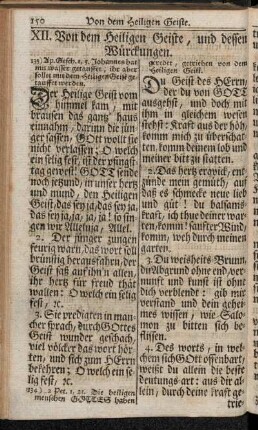 150 Von dem Heiligen Geiste.
XII. Von dem Heiligen Geiste, und dessen
Würckungen.
135. Ap. Gesch. 1, 5. Johannes hat
mit wasser getauffet, ihr aber
sollet mit dem Heiligen Geiste ge-
tauffet werden.
Der Heilige Geist vom
himmel kam, mit
brausen das gantz' haus
einnahm, darinn die jün-
ger sassen, GOtt wollt sie
nicht verlassen: O welch
ein selig fest, ist der pfingst-
tag gewest! GOTT sende
noch jetzund, in unser hertz
und mund, den Heiligen
Geist, das sey ja, das sey ja,
das sey ja, ja, ja, ja! so sin-
gen wir Alleluja, Allel.
2. Der jünger zungen
feurig warn, das wort soll
brünstig herausfahrn, der
Geist saß auf ihn'n allen,
ihr hertz für freud thät
wallen: O welch ein selig
fest, ꝛc.
3. Sie predigten in man-
cher sprach, durch GOttes
Geist wunder geschach,
viel völcker das wort hör-
ten, und sich zum HErrn
bekehrten: O welch ein se-
lig fest, ꝛc.
136. 2 Pet. 1. 21. Die heiligen
menschen GOTTES haben
geredet, getrieben von dem
Heiligen Geist.
Du Geist des HErrn,
der du von GOTT
ausgehst, und doch mit
ihm in gleichem wesen
stehst: Kraft aus der höh,
komm mich zu überschat-
ten, komm deinem lob und
meiner bitt zu statten.
2. Das hertz erweich, ent-
zünde mein gemüth, auf
daß es schmecke wie lieb
und gut! du bist, ach! köst-
lich, ich thu deiner war-
ten, komm! sanfter Wind,
komm, weh durch meinen
garten.
3. Du weisheits-Brunn,
du Abgrund ohne end, ver-
nunft und kunst ist ohne
dich verblendt: gib mir
verstand und dein gehei-
mes wissen, wie Salo-
mon zu bitten sich be-
flissen.
4. Des worts, in wel-
chem sich GOtt offenbart,
weißt du allein die beste
deutungs-art: aus dir al-
lein, durch deine kraft ge-
trie-